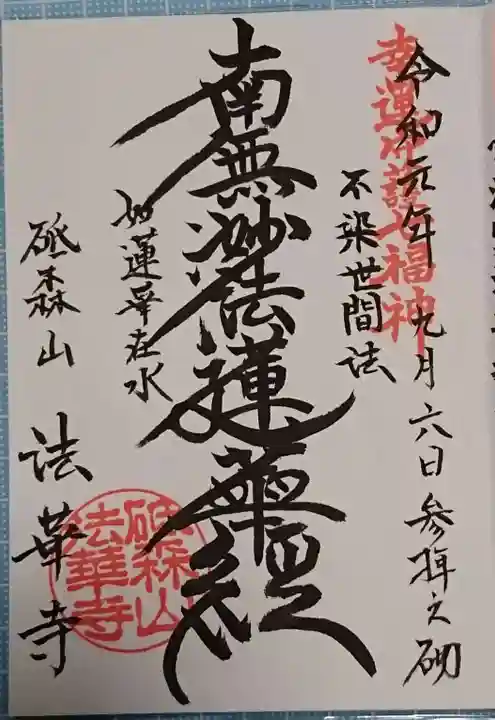 令和元年九月六日参拝之砌
幸運守護福神
不染世間法
南無妙法蓮華経
如蓮華在水
砥森山 法華寺
砥森山
法華寺